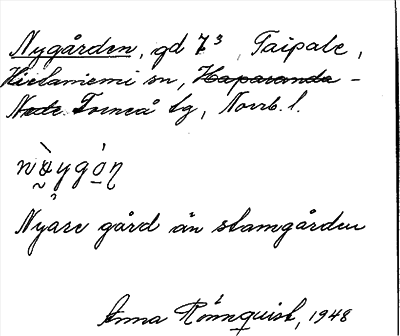 Nygården, gd 7³, Taipale,
Hietaniemi sn, Haparanda -
Nedr. Torneå tg, Norrb. l.
Nyare gård än stamgården
Anna Rönnquist, 1948